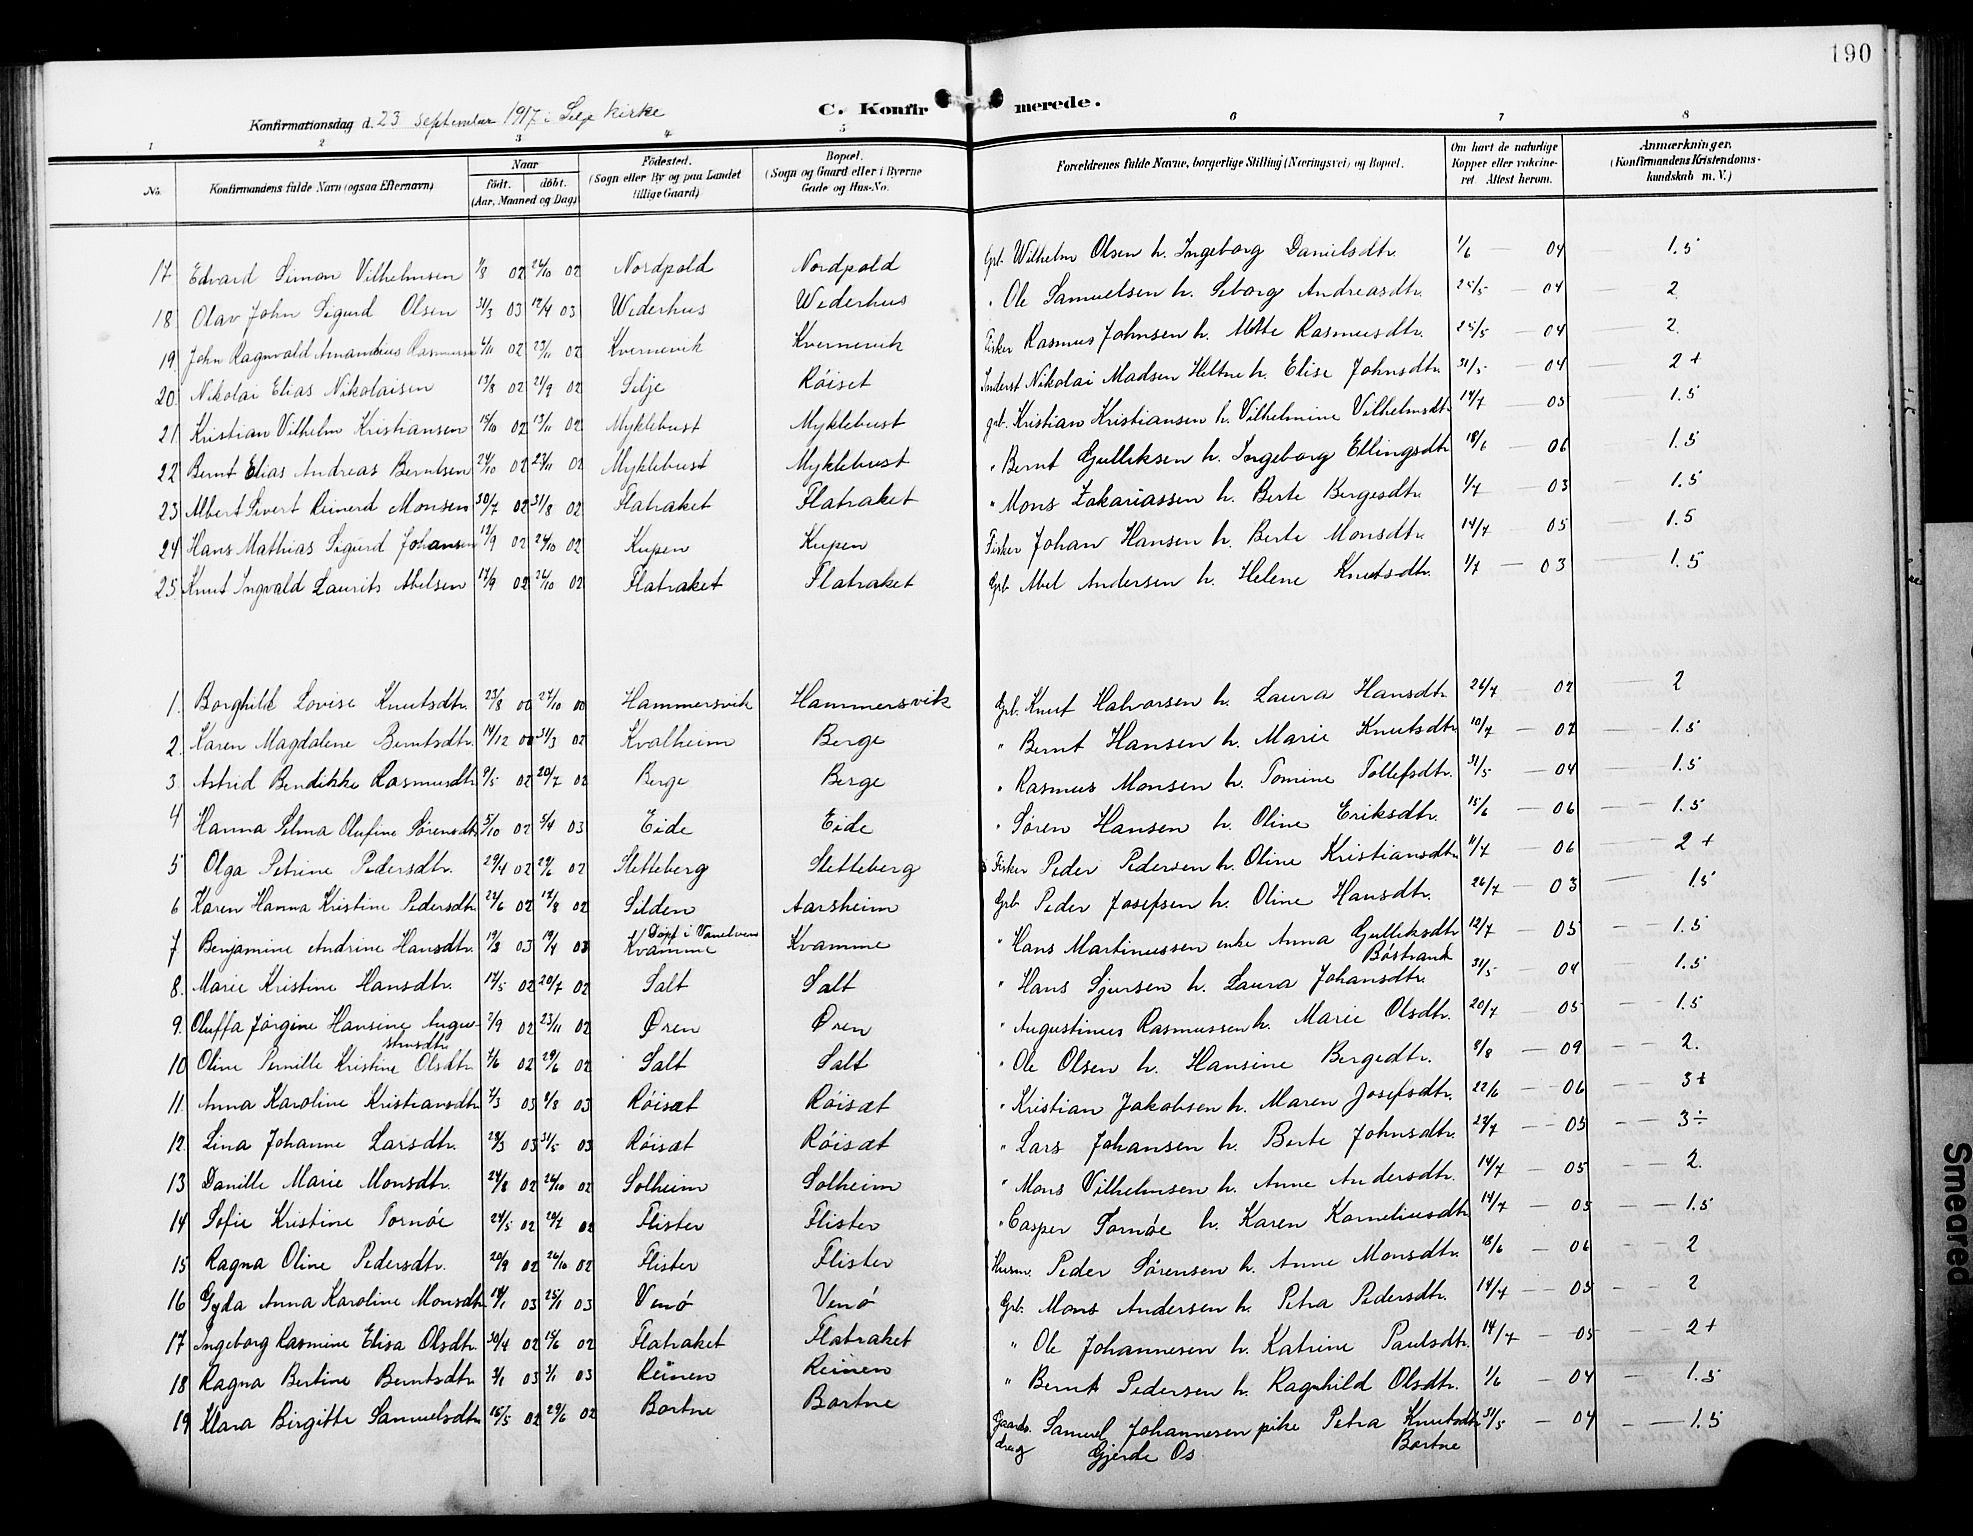 190
C. Konfirmerede.
Konfirmationsdag d. 23 september 1917 i Selje kirke
1 2 3 4 5 6 7 8
No. Konfirmandens fulde Navn (ogsaa Efternavn) Naar født. døbt. (Aar, Maaned og Dag) Fødested. (Sogn eller By og paa Landet tillige Gaard) Bopæl. (Sogn og Gaard eller i Byerne Gade og Hus-No. Forældrenes fulde Navne, borgerlige Stilling (Næringsvei) og Bopæl. Om havt de naturlige Kopper eller vaksineret. Attest herom. Anmærkninger. (Konfirmandens Kristendomskundskab m. V.)
17 Edvard Simon Vilhelmsen 1/8 02 24/10 02 Nordpold Nordpold Grb. Wilhelm Olsen h. Ingeborg Danielsdtr. 1/6 — 04 — 1.5
18 Olav John Sigurd Olsen 31/3 03 19/4 03 Wederhus Wederhus " Ole Samuelsen h. Seborg Andreasdtr. 25/5 — 04 — 2
19 John Ragnvald Amandus Rasmussen 4/11 02 23/11 02 Kvernevik Kvernevik Fisker Rasmus Johnsen h. Mette Rasmusdtr. 25/5 — 04 — 2.
20 Nikolai Elias Nikolaisen 13/8 02 21/9 02 Selje Røiset Inderst Nikolai Madsen Heltne h. Elise Johnsdtr. 31/5 — 04 — 2+
21 Kristian Vilhelm Kristiansen 15/10 02 13/11 02 Myklebust Myklebust grb. Kristian Kristiansen h. Vilhelmine Vilhelmsdtr 14/7 — 05 — 1.5
22 Bernt Elias Andreas Berntsen 24/10 02 23/11 02 Myklebust Myklebust " Bernt Gulliksen h. Ingeborg Ellingsdtr 18/6 — 06 — 1.5
23 Albert Sivert Reinerd Monsen 30/7 02 31/8 02 Flatraket Flatraket " Mons Zakariassen h. Berte Bergesdtr. 1/7 — 03 — 1.5
24 Hans Mathias Sigurd Johansen 19/9 02 26/10 02 Kupen Kupen Fisker Johan Hansen h. Berte Monsdtr. 14/7 — 05 — 1.5
25 Knut Ingvald Laurits Abelsen 17/9 02 26/10 02 Flatraket Flatraket Grb. Abel Andersen h. Helene Knutsdtr. 1/7 — 03 — 1.5
1. Borghild Lovise Knutsdtr. 23/8 00 27/10 00 Hammersvik Hammersvik Grb. Knut Halvorsen h. Laura Hansdtr 26/7 — 02 — 2
2. Karen Magdalene Berntsdtr. 14/12 00 31/3 02 Kvalheim Berge " Bernt Hansen h. Marie Knutsdtr 10/7 — 02 — 1.5
3. Astrid Bendikke Rasmusdtr 9/5 02 20/7 02 Berge Berge " Rasmus Monsen h. Tomine Tollefsdtr. 31/5 — 04 — 1.5
4 Hanna Selma Olufine Sørensdtr 5/10 02 5/4 03 Eide Eide " Søren Hansen h. Oline Eriksdtr. 15/6 — 06 — 1.5
5 Olga Petrine Pedersdtr. 29/4 02 29/6 02 Sletteberg Sletteberg Fisker Peder Pedersen h. Oline Kristiansdtr 11/7 — 06 — 2+
6 Karen Hanna Kristine Pedersdtr 22/6 02 17/8 02 Silden Aarsheim Grb. Peder Josefsen h. Oline Hansdtr. 26/7 — 03 — 1.5
7 Benjamine Andrine Hansdtr. 19/3 03 19/4 03 Døpt i Vanelven Kvamme Kvamme " Hans Martinussen enke Anna Gulleksdtr Bøstrand 12/7 — 05 — 1.5
8. Marie Kristine Hansdtr. 17/5 02 20/7 02 Salt Salt " Hans Sjursen h. Laura Johansdtr. 31/5 — 04 — 1.5
9. Oluffa Jørgine Hansine Augustinsdtr 2/9 02 23/11 02 Øren Øren " Augustinus Rasmussen h. Marie Olsdtr. 20/7 — 05 — 1.5
10 Oline Pernille Kristine Olsdtr. 1/6 02 29/6 02 Salt Salt " Ole Olsen h. Hansine Bergedtr. 8/8 — 09 — 2.
11. Anna Karoline Kristiansdtr 7/3 03 9/8 03 Røisæt Røisæt " Kristian Jakobsen h. Maren Josefsdtr. 22/6 — 06 — 3+
12. Lina Johanne Larsdtr. 29/3 03 31/5 03 Røisæt Røisæt " Lars Johansen h. Berte Johnsdtr. 27/7 — 05 — 3÷
13 Danille Marie Monsdtr. 24/8 02 26/10 02 Solheim Solheim " Mons Vilhelmsen h. Anne Andersdtr. 14/7 — 05 — 2.
14 Sofie Kristine Tornøe 24/5 02 20/7 02 Flister Flister " Casper Tornøe h. Karen Korneliusdtr 14/7 — 05 — 1.5
15 Ragna Oline Pedersdtr. 20/9 02 26/10 02 Flister Flister Husm. Peder Sørensen h. Anne Monsdtr. 18/6 — 06 — 2
16 Gyda Anna Karoline Monsdtr. 14/1 03 25/1 03 Venø Venø Grb. Mons Andersen h. Petra Pedersdtr. 14/7 — 05 — 2
17 Ingeborg Rasmine Elisa Olsdtr. 30/4 02 15/6 02 Flatraket Flatraket " Ole Johannesen h. Katrine Paulsdtr. 14/7 — 05 — 2+
18 Ragna Bertine Berntsdtr 3/1 03 3/1 03 Reinen Reinen " Bernt Pedersen h. Ragnhild Olsdtr. 1/6 — 04 — 1.5
19 Klara Birgitte Samuelsdtr 16/5 02 29/6 02 Bortne Bortne Gaardsdreng Samuel Johannesen pike Petra Knutsdtr 31/5 — 04 — 1.5
Gjerde Os Bortne
Smeared